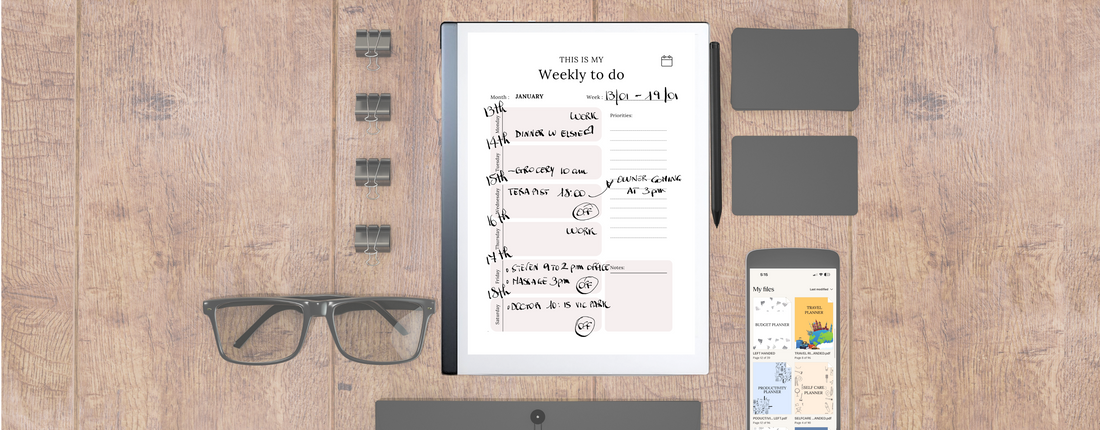 THIS IS MY
Weekly to do
Month : JANUARY
Week : 13/01 - 19/01
13th
Monday
WORK
DINNER W ELSIE
14th
Tuesday
-GROCERY 10 am
15th
Wednesday
TERAPIST 18:00
OFF
16th
Thursday
WORK
17th
Friday
STEVEN 9 TO 2 pm OFFICE
MASSAGE 3pm
OFF
18th
Saturday
DOCTOR 10:15 VIC PARK
OFF
Priorities:
OWNER COMING
AT 3pm
Notes:
My files
Last modified
BUDGET PLANNER
LEFT HANDED
TRAVEL
PLANNER
PRODUCTIVITY
PLANNER
SELF CARE
PLANNER